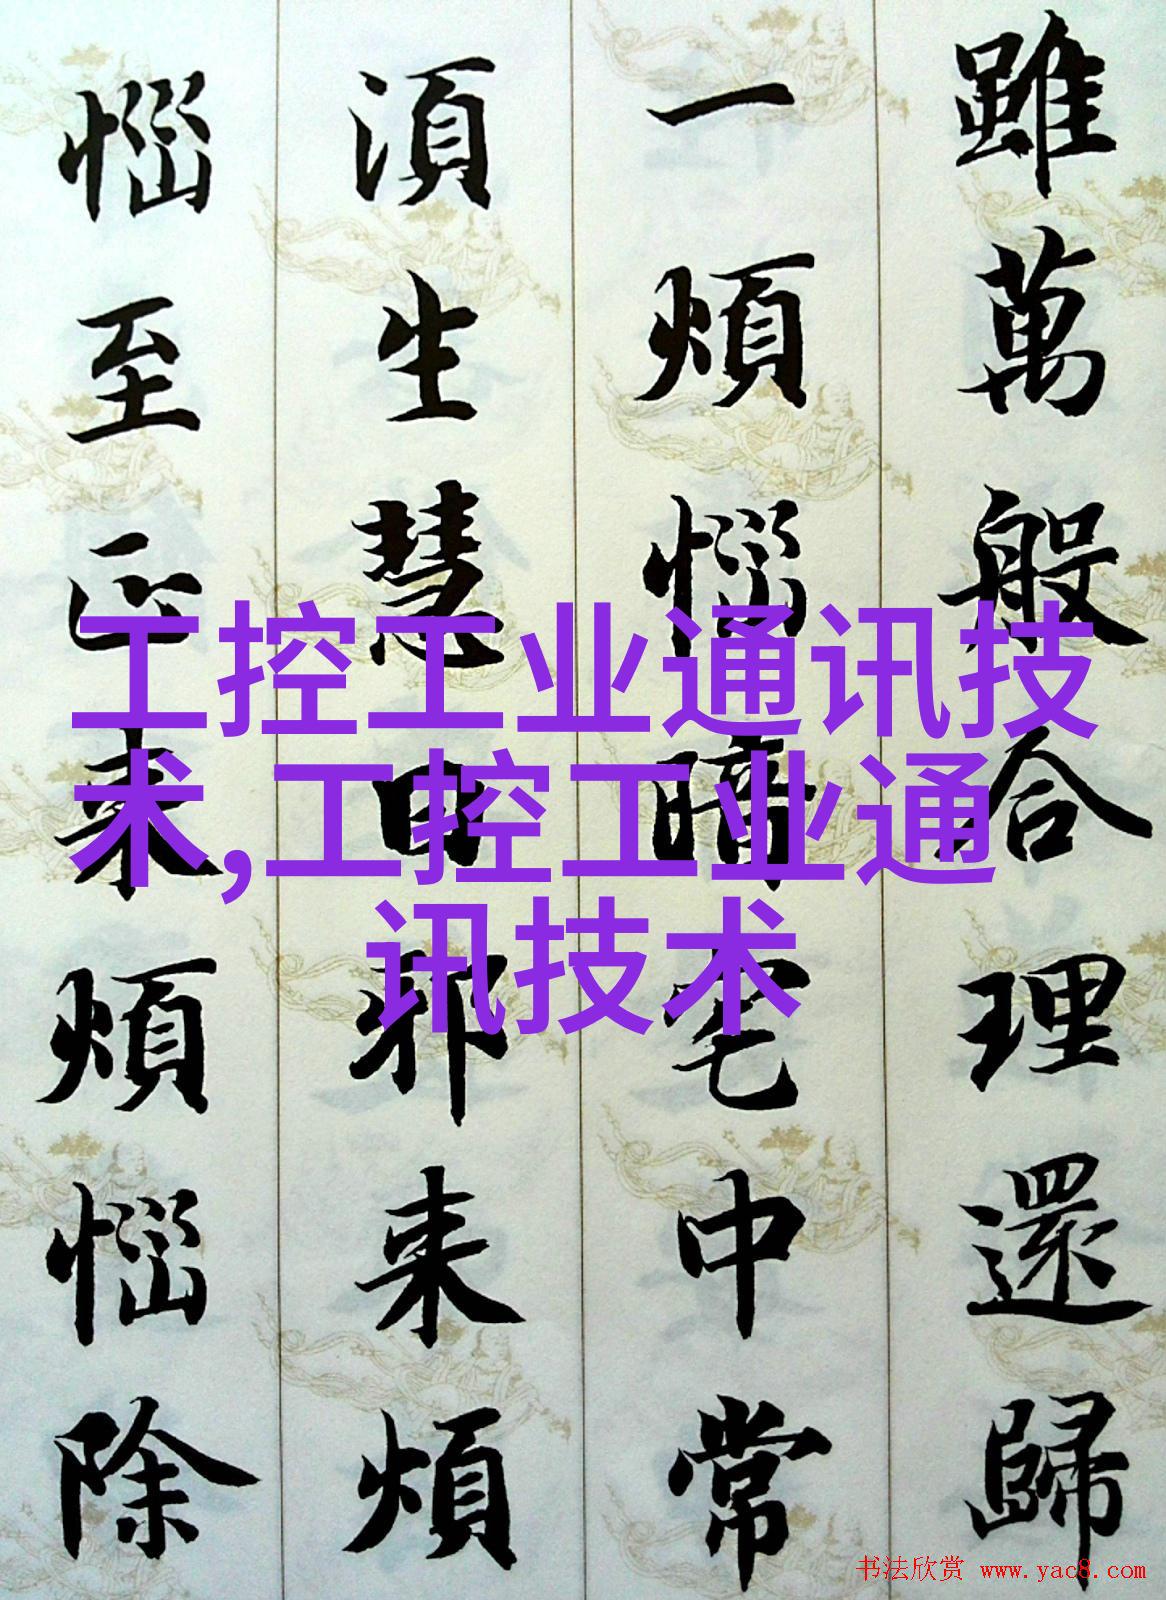 雖萬般合理還歸
一煩惱暗宅中常
湏生慧日邪来煩
惱至正来煩惱除
工控工业通讯技
术,工控工业通
讯技术
书法欣赏 www.yac8.com